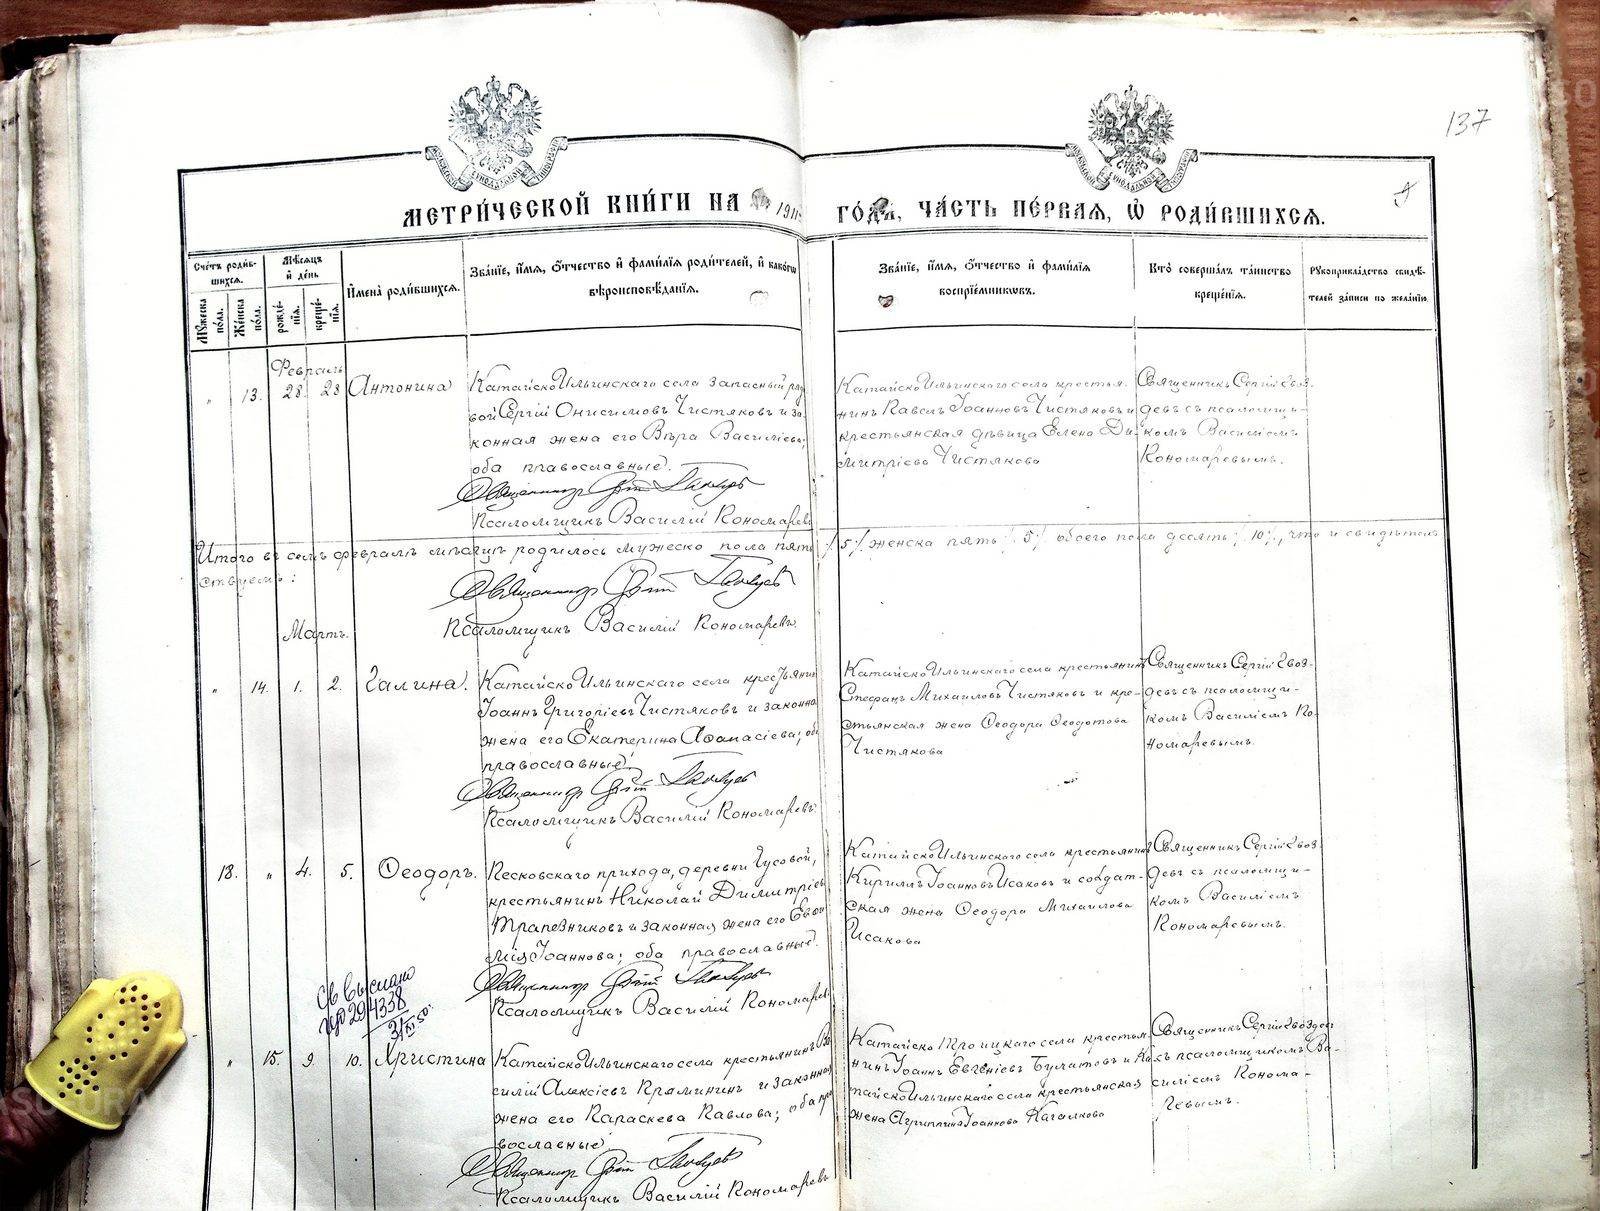 137
МЕТРИ́ЧЕСКОЙ КНИ́ГИ НА 1911 ГО́ДЪ, ЧА́СТЬ ПЕ́РВАЯ, Ѡ РОДИ́ВШИХСЯ.
Сче́тъ роди́вшихся.
Мꙋ́жеска по́ла.
Же́нска по́ла.
Мѣ́сяцъ и де́нь
рожде́нїя.
креще́нїя.
Имена̀ роди́вшихся.
Зва́нїе, и́мя, ѻ́тчество и фами́лїя роди́телей, и како́гѡ вѣроисповѣ́данїя.
Зва́нїе, и́мя, ѻ́тчество и фами́лїя воспрїе́мникѡвъ.
Кто̀ соверша́лъ та́инство креще́нїя.
Рꙋкоприкла́дство свидѣ́телей за́писи по жела́нїю.
Февраль
„ 13. 28 28 Антонина
Катайско Ильинскаго села запасный рядо
вой Сергій Онисимовъ Чистяковъ и за-
конная жена его Вѣра Василіева;
оба православные.
Священникъ
Псаломщикъ Василій Пономаревъ
Катайско Ильинскаго села крестья-
нинъ Павелъ Іоанновъ Чистяковъ и
крестьянская дѣвица Елена Ди-
митріева Чистякова
Священникъ Сергій Гвоз-
девъ съ псаломщи-
комъ Василіемъ
Пономаревымъ.
Итого въ семъ февралѣ мѣсяцѣ родилось мужеска пола пять ٪ 5 ٪ женска пять ٪ 5 ٪ обоего пола десять ٪ 10 ٪, что и свидѣтель
ствуемъ:
Священникъ
Псаломщикъ Василій Пономаревъ.
Мартъ.
„ 14. 1. 2. Галина.
Катайско Ильинскаго села крестьянинъ
Іоаннъ Григоріевъ Чистяковъ и законная
жена его Екатерина Аѳанасіева; оба
православные.
Священникъ
Псаломщикъ Василій Пономаревъ.
Катайско Ильинскаго села крестьянинъ
Стефанъ Михаиловъ Чистяковъ и кре-
стьянская жена Ѳеодора Ѳеодотова
Чистякова
Священникъ Сергій Гвоз-
девъ съ псаломщи-
комъ Василіемъ По-
номаревымъ.
18. „ 4. 5. Ѳеодоръ.
Песковскаго прихода, деревни Гусовой,
крестьянинъ Николай Димитріевъ
Трапезниковъ и законная жена его Евѳи
мія Іоаннова; оба православные.
Священникъ
Псаломщикъ Василій Пономаревъ
Катайско Ильинскаго села крестьянинъ
Кириллъ Іоанновъ Исаковъ и солдат-
ская жена Ѳеодора Михаилова
Исакова
Священникъ Сергій Гвоз-
девъ съ псаломщи-
комъ Василіемъ
Пономаревымъ.
Св выслано
294338
3/XI 50.
„ 15. 9. 10. Христина
Катайско Ильинскаго села крестьянинъ Ва
силій Алексіевъ Крамининъ и законная
жена его Параскева Павлова; оба пра
вославные
Священникъ
Псаломщикъ Василій Пономаревъ
Катайско Троицкаго села крестья
нинъ Іоаннъ Евгеніевъ Булатовъ и Ка-
тайско Ильинскаго села крестьянская
жена Агриппина Іоаннова Пагалкова
Священникъ Сергій Гвоздевъ
съ псаломщикомъ Ва-
силіемъ Понома-
ревымъ.